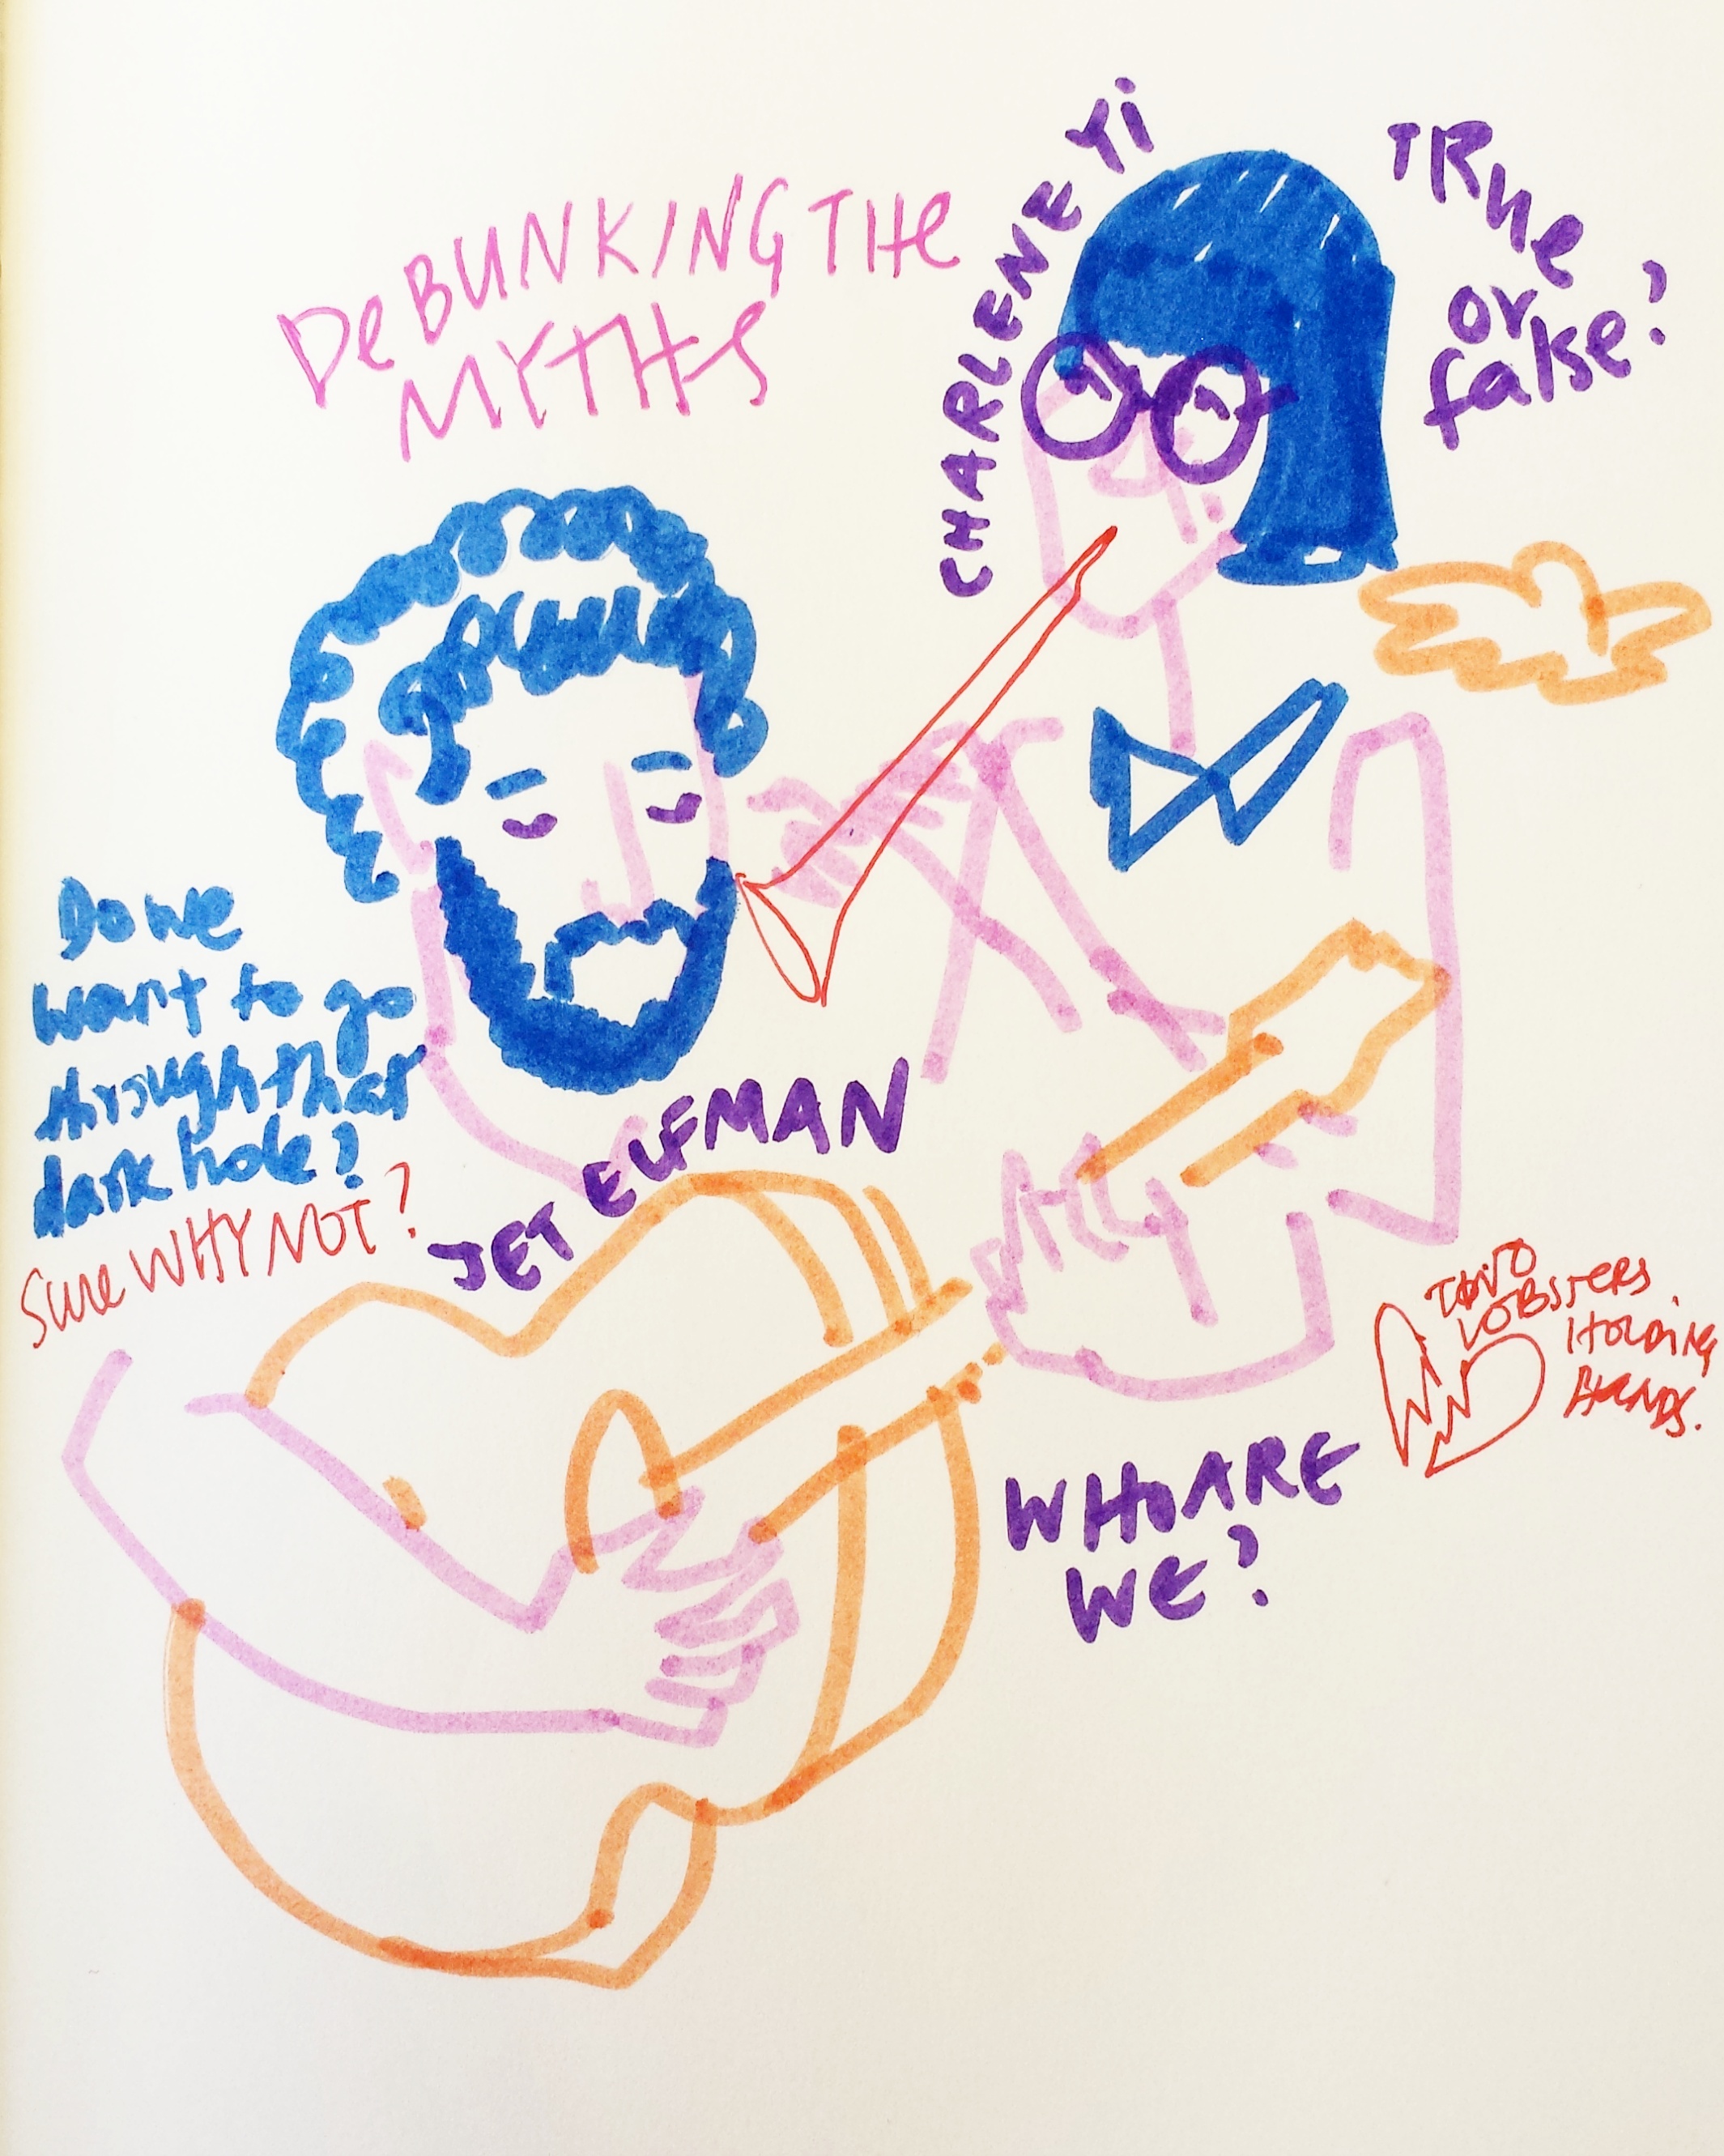 CHARLENE Yi
TRue
or
false?
DeBUNKING THe
MYTHS
Do we
want to go
through that
dark hole?
Sure WHY NOT?
JET ELFMAN
TWO
LOBSTERS
HOLDING
HANDS.
WHO ARE
WE?